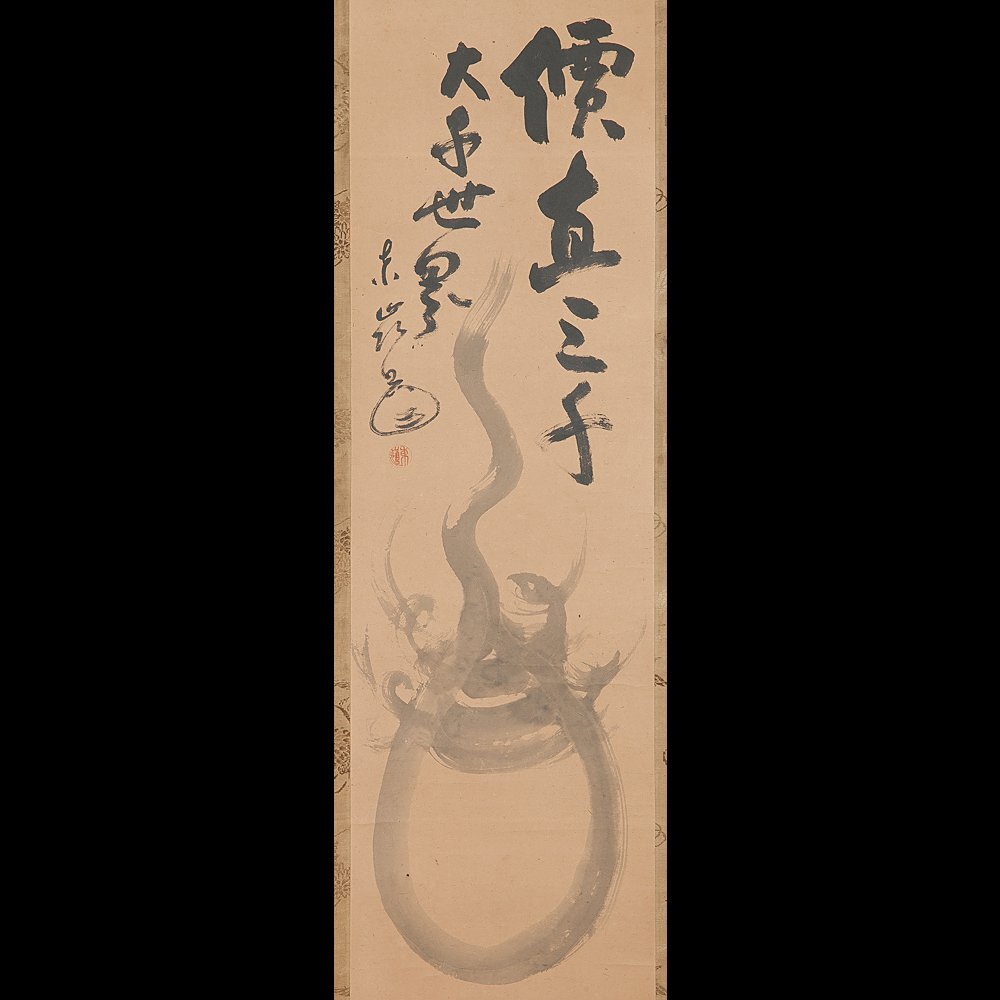 價直三千
大千世界
東嶺